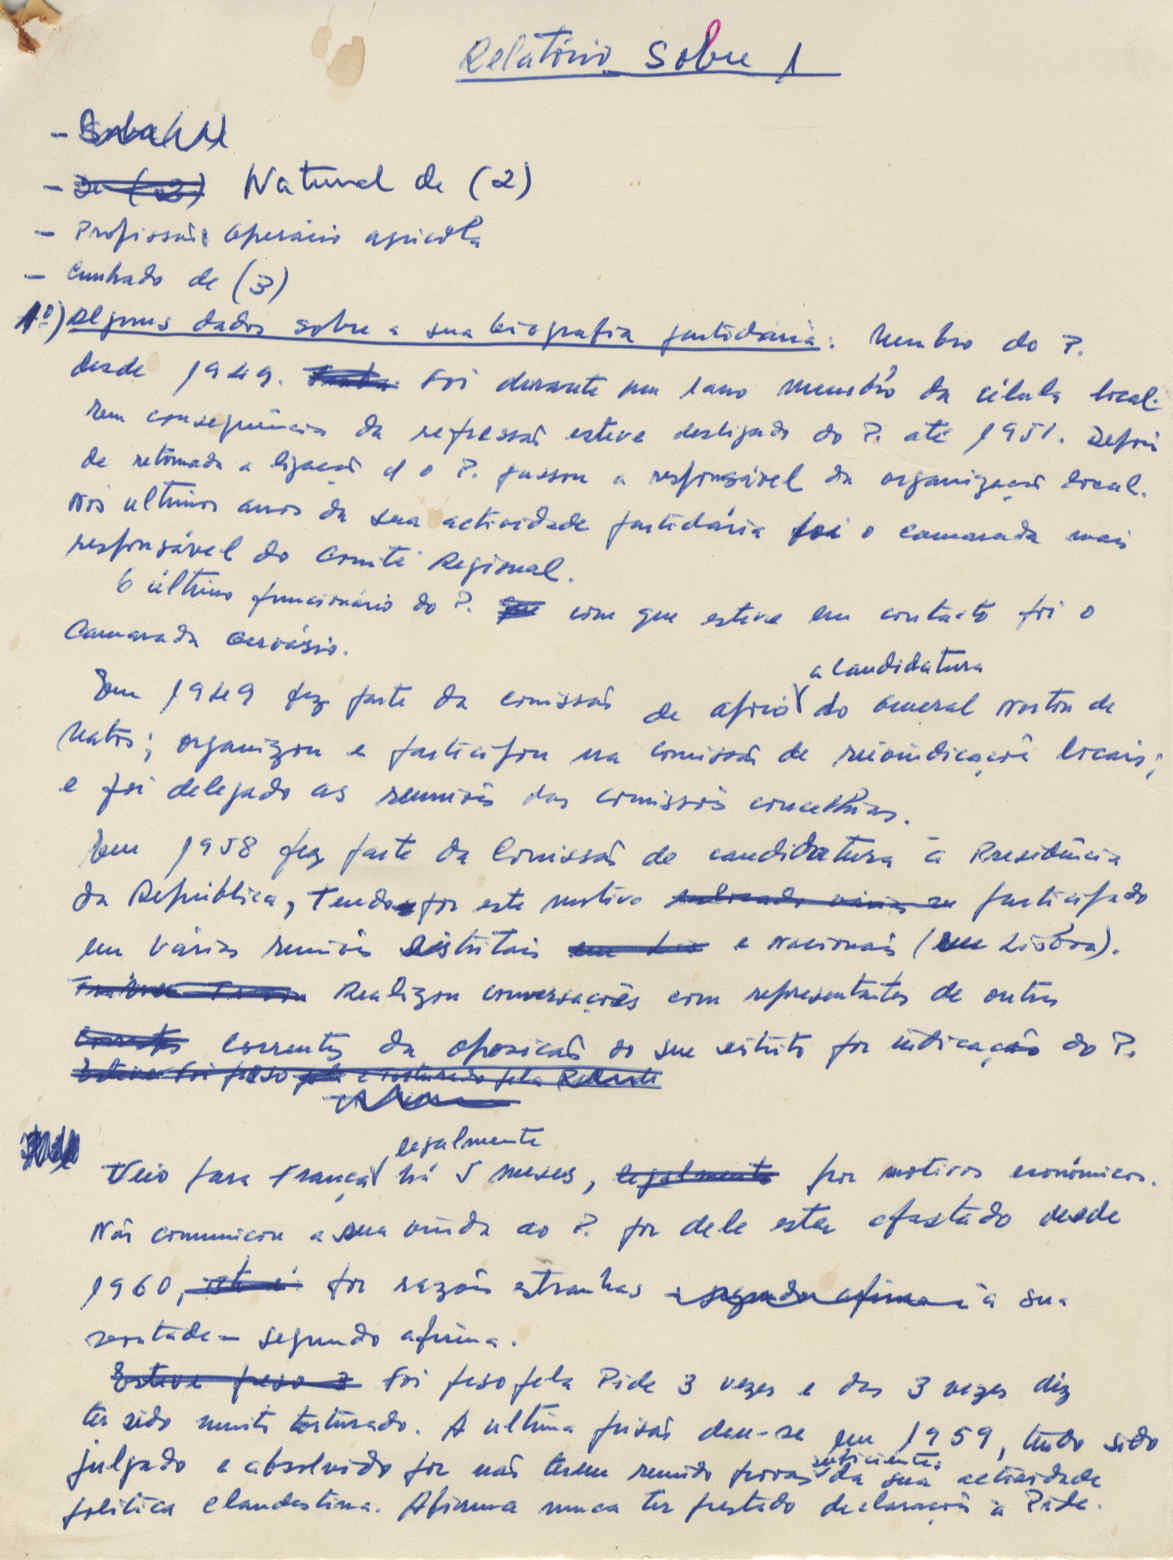 Relatório sobre 1
- Natural de (2)
- Profissão: Operário agricola
- Cunhado de (3)
1º) Alguns dados sobre a sua biografia partidária: Membro do P.
desde 1949. Foi durante um ano membro da célula local.
em consequência da repressão esteve desligado do P. até 1951. Depois
de retomada a ligação c/ o P. passou a responsável da organização local.
Nos ultimos anos da sua actividade partidária foi o camarada mais
responsável do Comité Regional.
O último funcionário do P. com que esteve em contacto foi o
Camarada Gervásio.
Em 1949 fez parte da comissão de apoio a candidatura do General Norton de
Matos; organizou e participou na comissão de reivindicações locais;
e foi delegado as reuniões das comissões concelhias.
Em 1958 fez parte da Comissão de candidatura à Presidência
da República, Tendo por este motivo participado
em várias reuniões distritais e nacionais (em Lisboa).
Realizou conversações com representantes de outras
correntes da oposição do seu distrito por indicação do P.
Foi preso e torturado pela
Veio para França legalmente há 5 meses, legalmente por motivos económicos.
Não comunicou a sua vinda ao P. por dele estar afastado desde
1960, por razões estranhas segundo afirma à sua
vontade - segundo afirma.
Esteve preso 3 Foi preso pela Pide 3 vezes e das 3 vezes diz
ter sido muito torturado. A ultima prisão deu-se em 1959, tendo sido
julgado e absolvido por não terem reunido provas suficientes da sua actividade
politica clandestina. Afirma nunca ter prestado declarações à Pide.